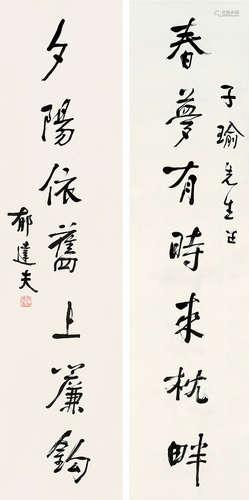 春夢有時來枕畔
子瑜先生正
夕陽依舊上簾鉤
郁達夫